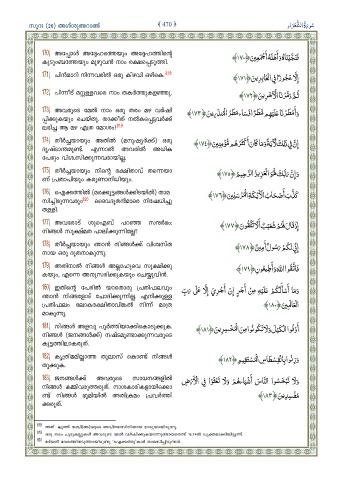 സൂറ (26) അശ്ശുഅറാഅ്
﴾ 470 ﴿
سُورَةُ الشُّعَرَاءِ
170) അപ്പോള്‍ അദ്ദേഹത്തെയും അദ്ദേഹത്തിന്റെ
കുടുംബത്തെയും മുഴുവന്‍ നാം രക്ഷപ്പെടുത്തി.
فَنَجَّيْنَاهُ وَأَهْلَهُ أَجْمَعِينَ ﴿١٧٠﴾
171) പിന്‍മാറി നിന്നവരില്‍ ഒരു കിഴവി ഒഴികെ.
إِلَّا عَجُوزًا فِي الْغَابِرِينَ ﴿١٧١﴾
172) പിന്നീട് മറ്റുള്ളവരെ നാം തകര്‍ത്തുകളഞ്ഞു.
ثُمَّ دَمَّرْنَا الْآخَرِينَ ﴿١٧٢﴾
173) അവരുടെ മേല്‍ നാം ഒരു തരം മഴ വര്‍ഷി
പ്പിക്കുകയും ചെയ്തു. താക്കീത് നല്‍കപ്പെട്ടവര്‍ക്ക്
ലഭിച്ച ആ മഴ എത്ര മോശം!
وَأَمْطَرْنَا عَلَيْهِم مَّطَرًا فَسَاءَ مَطَرُ الْمُنذَرِينَ ﴿١٧٣﴾
174) തീര്‍ച്ചയായും അതില്‍ (മനുഷ്യര്‍ക്ക്) ഒരു
ദൃഷ്ടാന്തമുണ്ട്. എന്നാല്‍ അവരില്‍ അധിക
പേരും വിശ്വസിക്കുന്നവരായില്ല.
إِنَّ فِي ذَٰلِكَ لَآيَةً وَمَا كَانَ أَكْثَرُهُم مُّؤْمِنِينَ ﴿١٧٤﴾
175) തീര്‍ച്ചയായും നിന്റെ രക്ഷിതാവ് തന്നെയാ
ണ് പ്രതാപിയും കരുണാനിധിയും.
وَإِنَّ رَبَّكَ لَهُوَ الْعَزِيزُ الرَّحِيمُ ﴿١٧٥﴾
176) ഐക്കത്തില്‍ (മരക്കൂട്ടങ്ങള്‍ക്കിടയില്‍) താമ
സിച്ചിരുന്നവരും ദൈവദൂതന്‍മാരെ നിഷേധിച്ചു
തള്ളി.
كَذَّبَ أَصْحَابُ الْأَيْكَةِ الْمُرْسَلِينَ ﴿١٧٦﴾
177) അവരോട് ശുഐബ് പറഞ്ഞ സന്ദര്‍ഭം:
നിങ്ങള്‍ സൂക്ഷ്മത പാലിക്കുന്നില്ലേ?
إِذْ قَالَ لَهُمْ شُعَيْبٌ أَلَا تَتَّقُونَ ﴿١٧٧﴾
178) തീര്‍ച്ചയായും ഞാന്‍ നിങ്ങള്‍ക്ക് വിശ്വസ്ത
നായ ഒരു ദൂതനാകുന്നു.
إِنِّي لَكُمْ رَسُولٌ أَمِينٌ ﴿١٧٨﴾
179) അതിനാല്‍ നിങ്ങള്‍ അല്ലാഹുവെ സൂക്ഷിക്കു
കയും, എന്നെ അനുസരിക്കുകയും ചെയ്യുവിന്‍.
فَاتَّقُوا اللَّهَ وَأَطِيعُونِ ﴿١٧٩﴾
180) ഇതിന്റെ പേരില്‍ യാതൊരു പ്രതിഫലവും
ഞാന്‍ നിങ്ങളോട് ചോദിക്കുന്നില്ല. എനിക്കുള്ള
പ്രതിഫലം ലോകരക്ഷിതാവിങ്കല്‍ നിന്ന് മാത്ര
മാകുന്നു.
وَمَا أَسْأَلُكُمْ عَلَيْهِ مِنْ أَجْرٍ إِنْ أَجْرِيَ إِلَّا عَلَىٰ رَبِّ
الْعَالَمِينَ ﴿١٨٠﴾
181) നിങ്ങള്‍ അളവു പൂര്‍ത്തിയാക്കിക്കൊടുക്കുക.
നിങ്ങള്‍ (ജനങ്ങള്‍ക്ക്) നഷ്ടമുണ്ടാക്കുന്നവരുടെ
കൂട്ടത്തിലാകരുത്.
أَوْفُوا الْكَيْلَ وَلَا تَكُونُوا مِنَ الْمُخْسِرِينَ ﴿١٨١﴾
182) കൃത്രിമമില്ലാത്ത തുലാസ് കൊണ്ട് നിങ്ങള്‍
തൂക്കുക.
وَزِنُوا بِالْقِسْطَاسِ الْمُسْتَقِيمِ ﴿١٨٢﴾
183) ജനങ്ങള്‍ക്ക് അവരുടെ സാധനങ്ങളില്‍
നിങ്ങള്‍ കമ്മിവരുത്തരുത്. നാശകാരികളായിക്കൊ
ണ്ട് നിങ്ങള്‍ ഭൂമിയില്‍ അതിക്രമം പ്രവര്‍ത്തി
ക്കരുത്.
وَلَا تَبْخَسُوا النَّاسَ أَشْيَاءَهُمْ وَلَا تَعْثَوْا فِي الْأَرْضِ
مُفْسِدِينَ ﴿١٨٣﴾